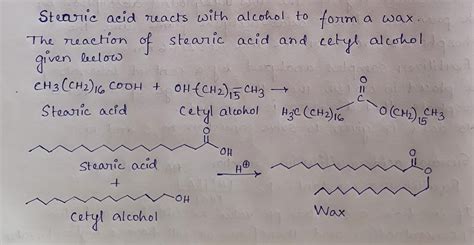 Stearic acid reacts with alcohol to form a wax.
The reaction of stearic acid and cetyl alcohol
given below
CH3(CH2)16 COOH + OH-(CH2)15-CH3 → H3C(CH2)16 C O O(CH2)15 CH3
Stearic acid Cetyl alcohol
O
OH
Stearic acid
+
H⊕
O
O
OH
Cetyl alcohol
Wax